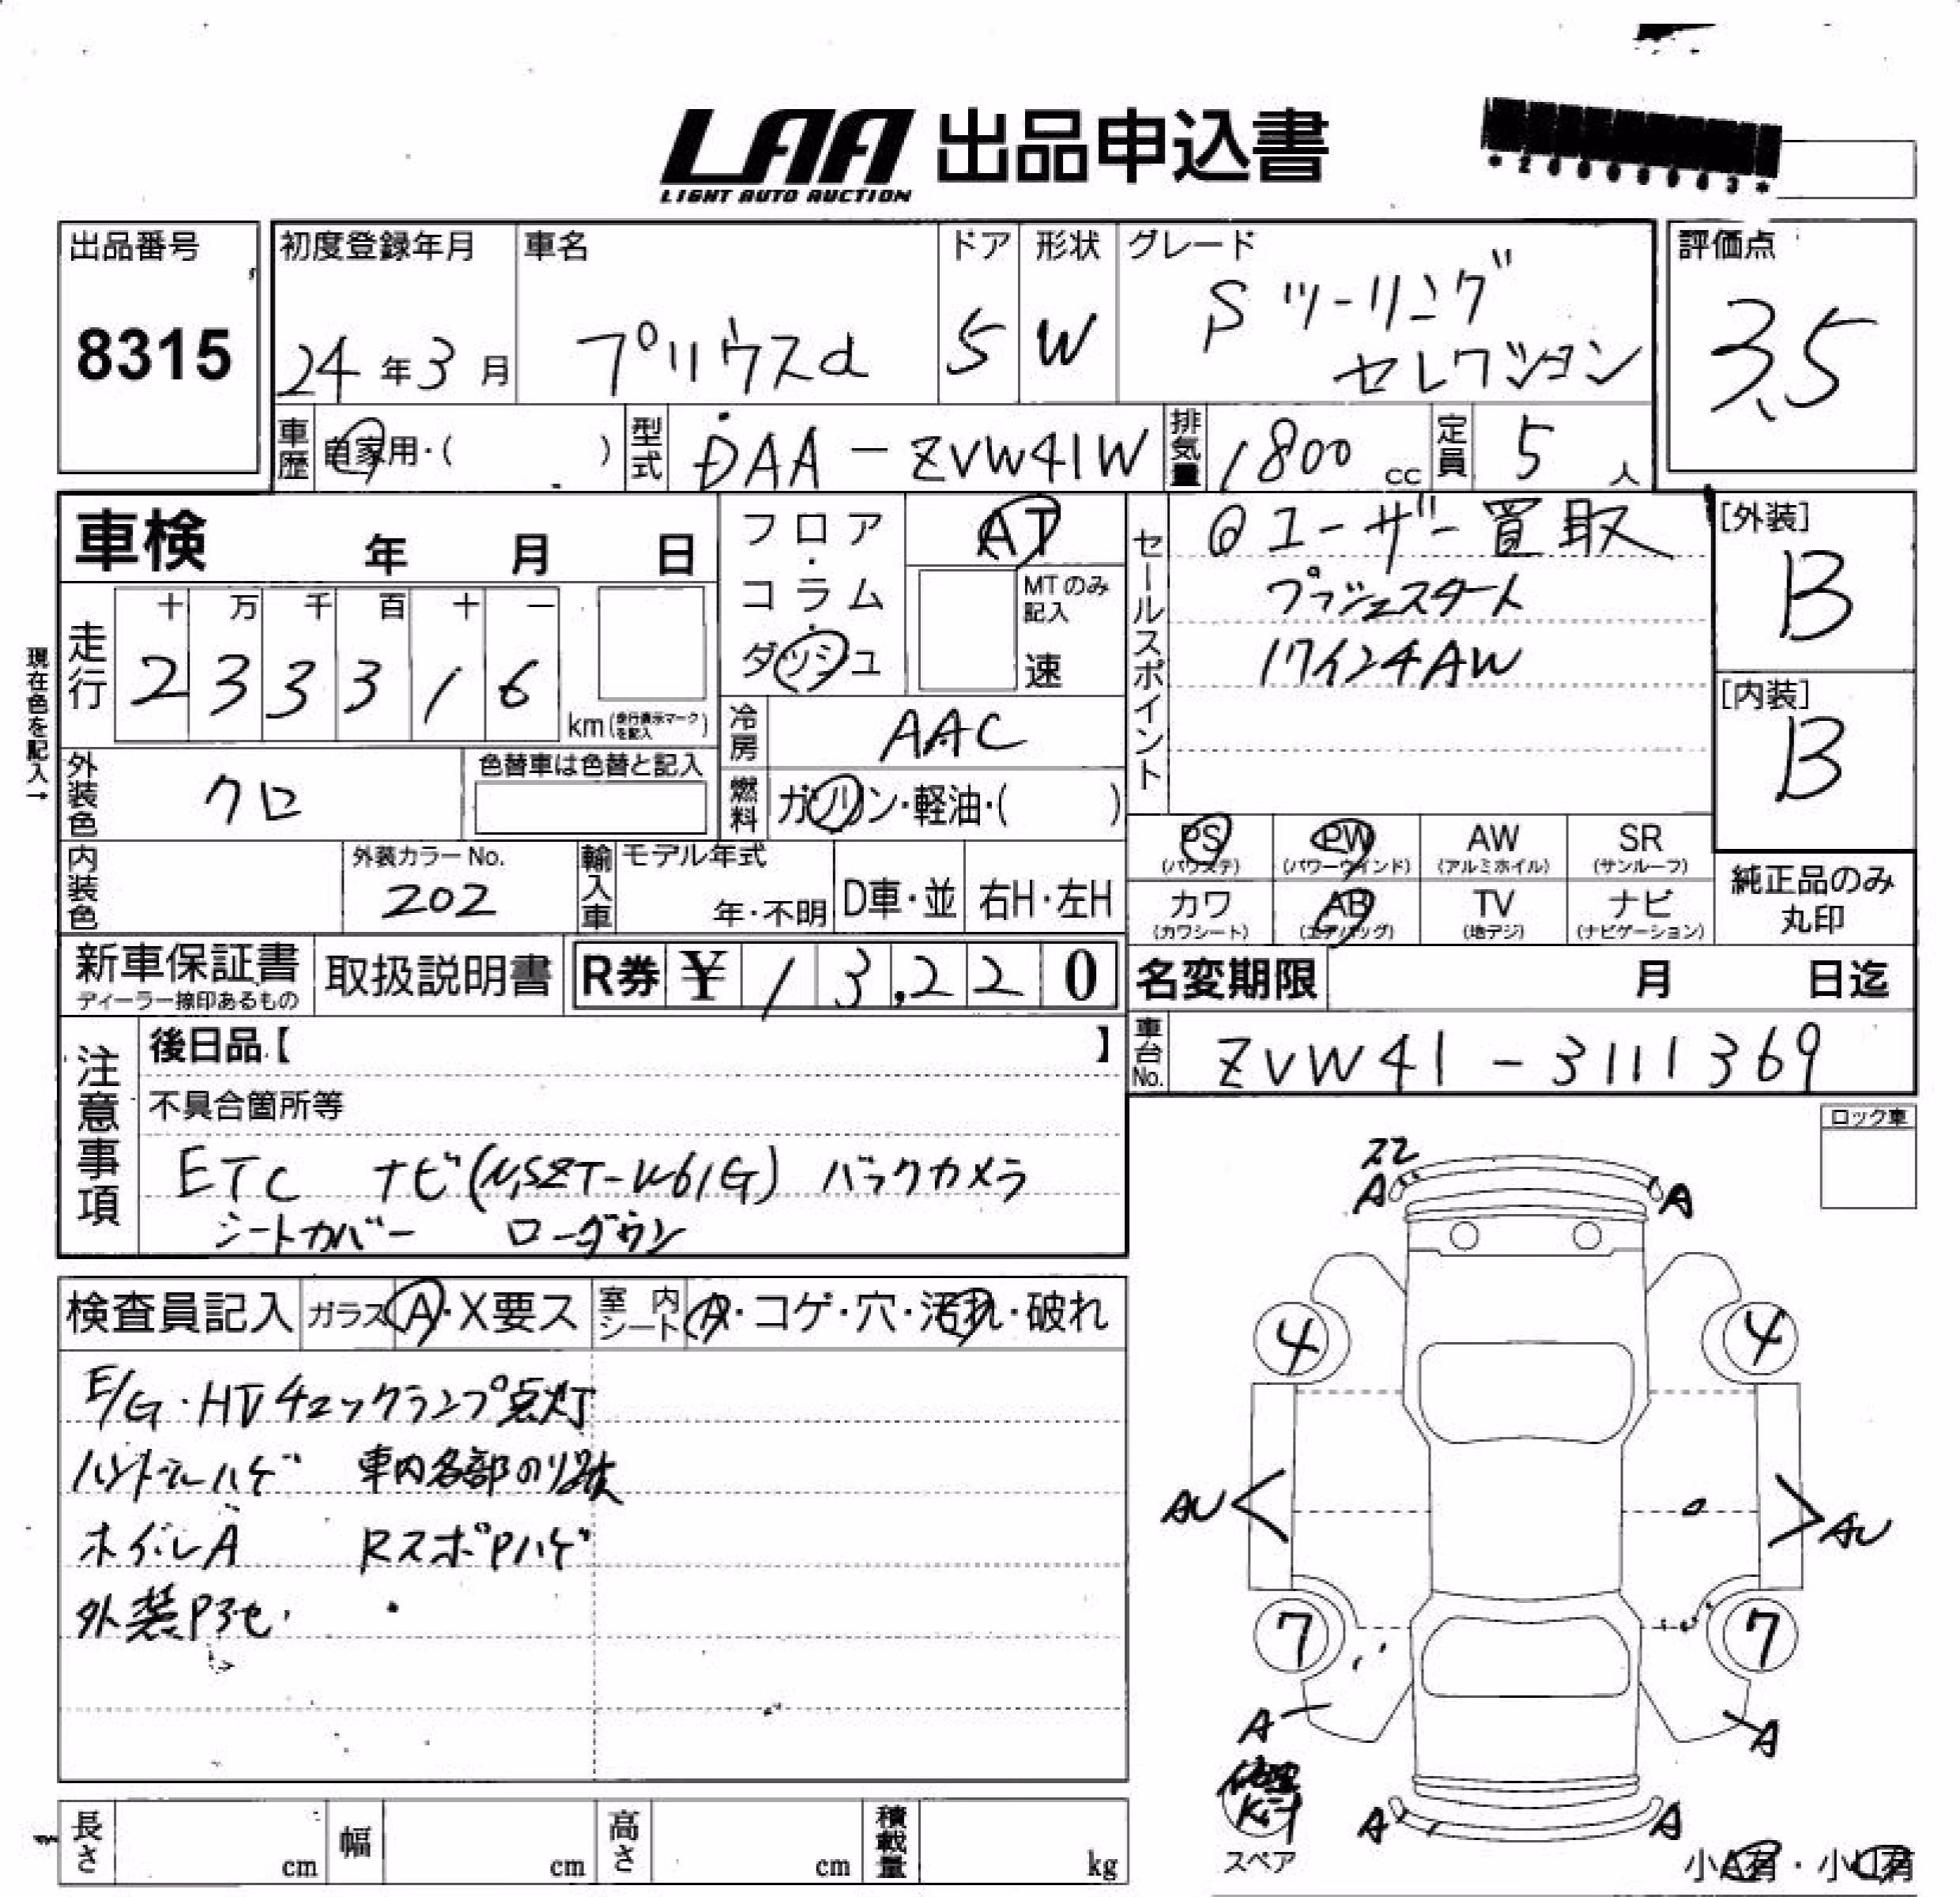 LAA 出品申込書
LIGHT AUTO AUCTION
出品番号
8315
初度登録年月
24年3月
車名
プリウスα
ドア
5
形状
W
グレード
Sツーリング
セレクション
評価点
3.5
車歴
自家用・( )
型式
DAA-ZVW41W
排気量
1800cc
定員
5人
車検 年 月 日
現在色を記入→
走行
十 万 千 百 十 一
2 3 3 3 1 6
km(走行表示マークを記入)
フロア・コラム・ダッシュ
AT
MTのみ記入
速
冷房
AAC
燃料
ガソリン・軽油・( )
外装色
クロ
色替車は色替と記入
内装色
外装カラーNo.
202
輸入車
モデル年式
年・不明
D車・並
右H・左H
セールスポイント
◎ユーザー買取
プッシュスタート
17インチAW
[外装]
B
[内装]
B
PS
(パワステ)
PW
(パワーウィンド)
AW
(アルミホイル)
SR
(サンルーフ)
カワ
(カワシート)
AB
(エアバッグ)
TV
(地デジ)
ナビ
(ナビゲーション)
純正品のみ
丸印
新車保証書
ディーラー捺印あるもの
取扱説明書
R券 ¥13,220
名変期限 月 日迄
車台No.
ZVW41-3111369
注意事項
後日品【 】
不具合箇所等
ETC ナビ(NSZT-W61G) バックカメラ
シートカバー ローダウン
ロック車
検査員記入
ガラス
A・X要ス
室内シート
A・コゲ・穴・汚れ・破れ
E/G・HVチェックランプ点灯
ハンドルハゲ 車内各部のり跡
ホイルA RスポPハゲ
外装Pヌセ
22
A A
4 4
AU AU
7 7
A A
修理
Kit
スペア
A A
小A有・小U有
長さ cm
幅 cm
高さ cm
積載量 kg